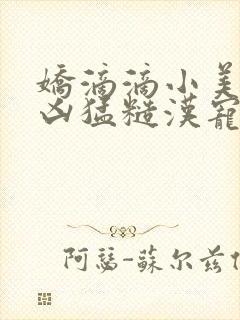 嬌滴滴小美
凶猛糙漢寵
阿瑟-蘇尔兹